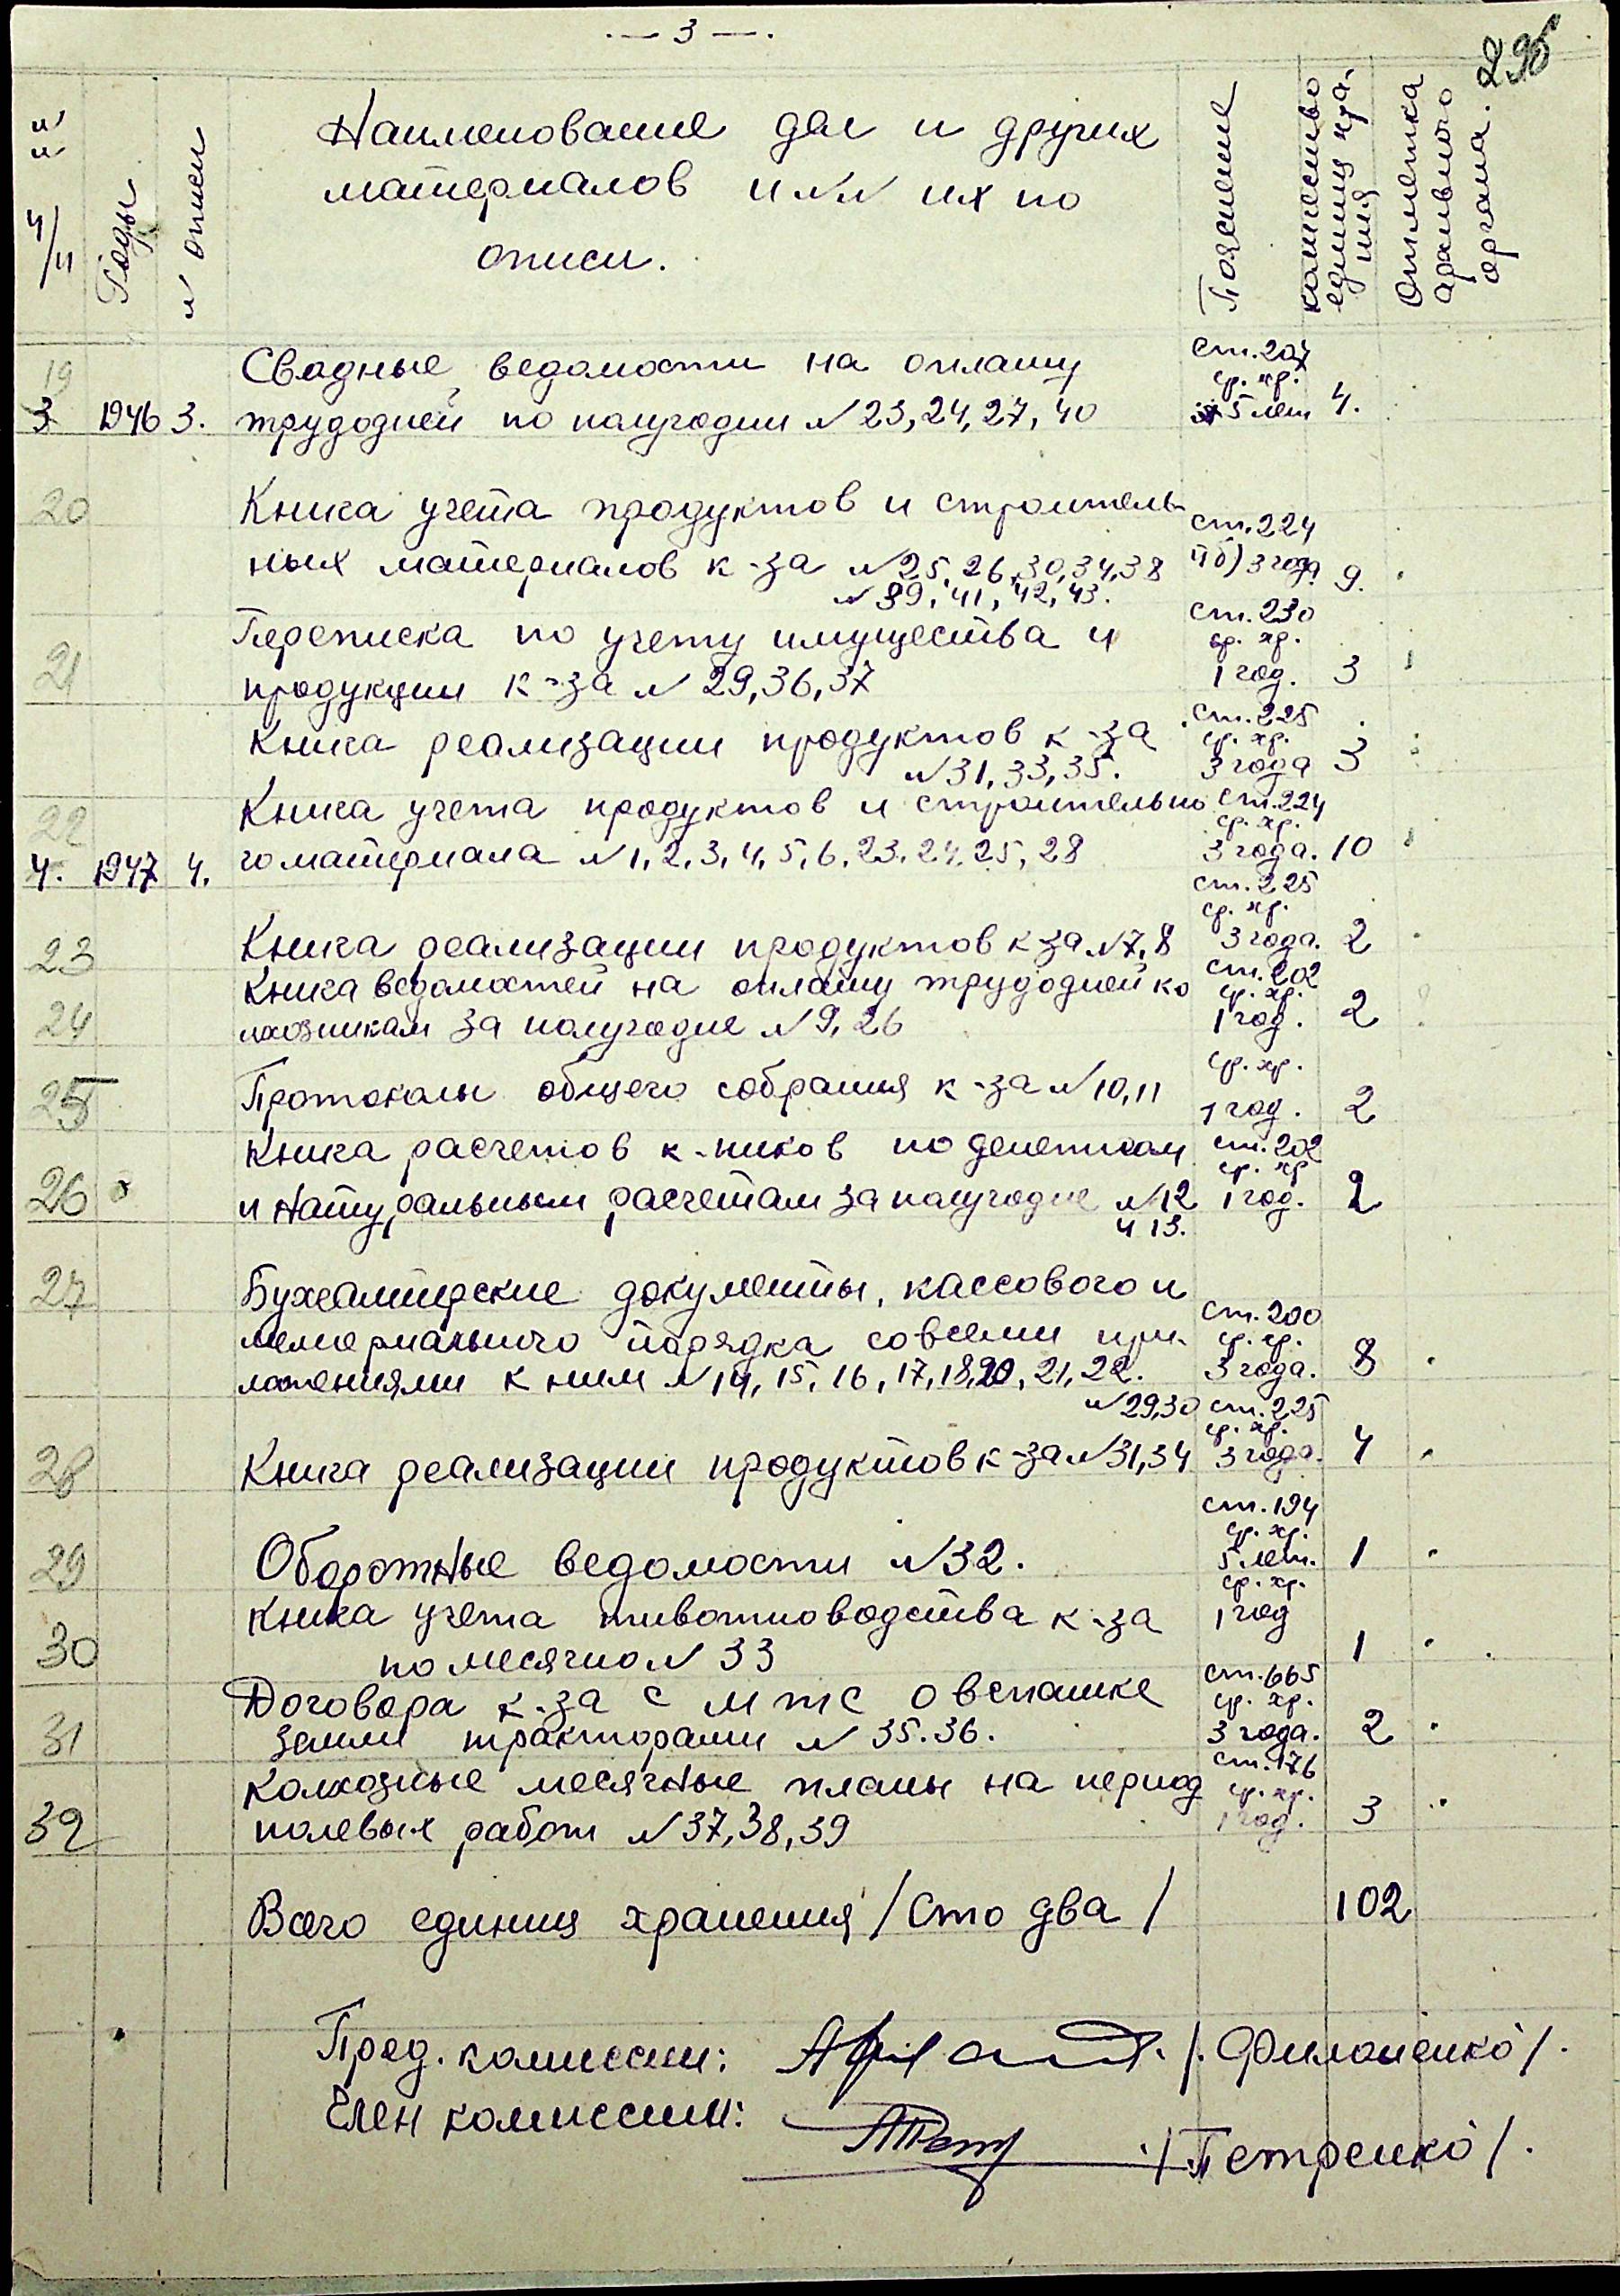 — 3 —.
296
№№ п/п
Годы
№ описи
Наименование дел и других
материалов и №№ их по
описи.
Пояснение
количество
единиц хра-
ния
Отметка
архивного
органа.
19
Сводные ведомости на оплату ст. 207
ср. хр.
3 1946 3. трудодней по полугодии № 23, 24, 27, 40 5 лет 4.
20 Книга учета продуктов и строитель- ст. 224
ных материалов к-за № 25, 26, 30, 34, 38 п б) 3 года 9.
№ 39, 41, 42, 43.
ст. 230
Переписка по учету имущества и ср. хр.
21 продукции к-за № 29, 36, 37 1 год. 3
ст. 225
Книга реализации продуктов к-за ср. хр.
№ 31, 33, 35. 3 года 3
22 Книга учета продуктов и строительно ст. 224
ср. хр.
4. 1947 4. го материала № 1, 2, 3, 4, 5, 6, 23, 24, 25, 28 3 года. 10
ст. 225
ср. хр.
23 Книга реализации продуктов к-за № 7, 8 3 года. 2
Книга ведомостей на оплату трудодней ко ст. 202
ср. хр.
24 лхозникам за полугодие № 9, 26 1 год. 2
ср. хр.
25 Протоколы общего собрания к-за № 10, 11 1 год. 2
Книга расчетов к-ников по денежным ст. 202
ср. хр
26 и натуральным расчетам за полугодие № 12 1 год. 2
и 13.
27 Бухгалтерские документы, кассового и
ст. 200
мемориального порядка со всеми при- ср. хр.
ложениями к ним № 14, 15, 16, 17, 18, 20, 21, 22. 3 года. 8
№ 29, 30 ст. 225
ср. хр.
28 Книга реализации продуктов к-за № 31, 34 3 года. 4
ст. 194
ср. хр.
29 Оборотные ведомости № 32. 5 лет. 1
ср. хр.
Книга учета животноводства к-за 1 год
30 по месячно № 33 1
Договора к-за с МТС о вспашке ст. 665
ср. хр.
31 земли тракторами № 35. 36. 3 года. 2
ст. 176
Колхозные месячные планы на период ср. хр.
32 полевых работ № 37, 38, 39 1 год. 3
Всего единиц хранения /Сто два/ 102
Пред. комиссии: /. Филоненко/.
Член комиссии: ./Петренко/.